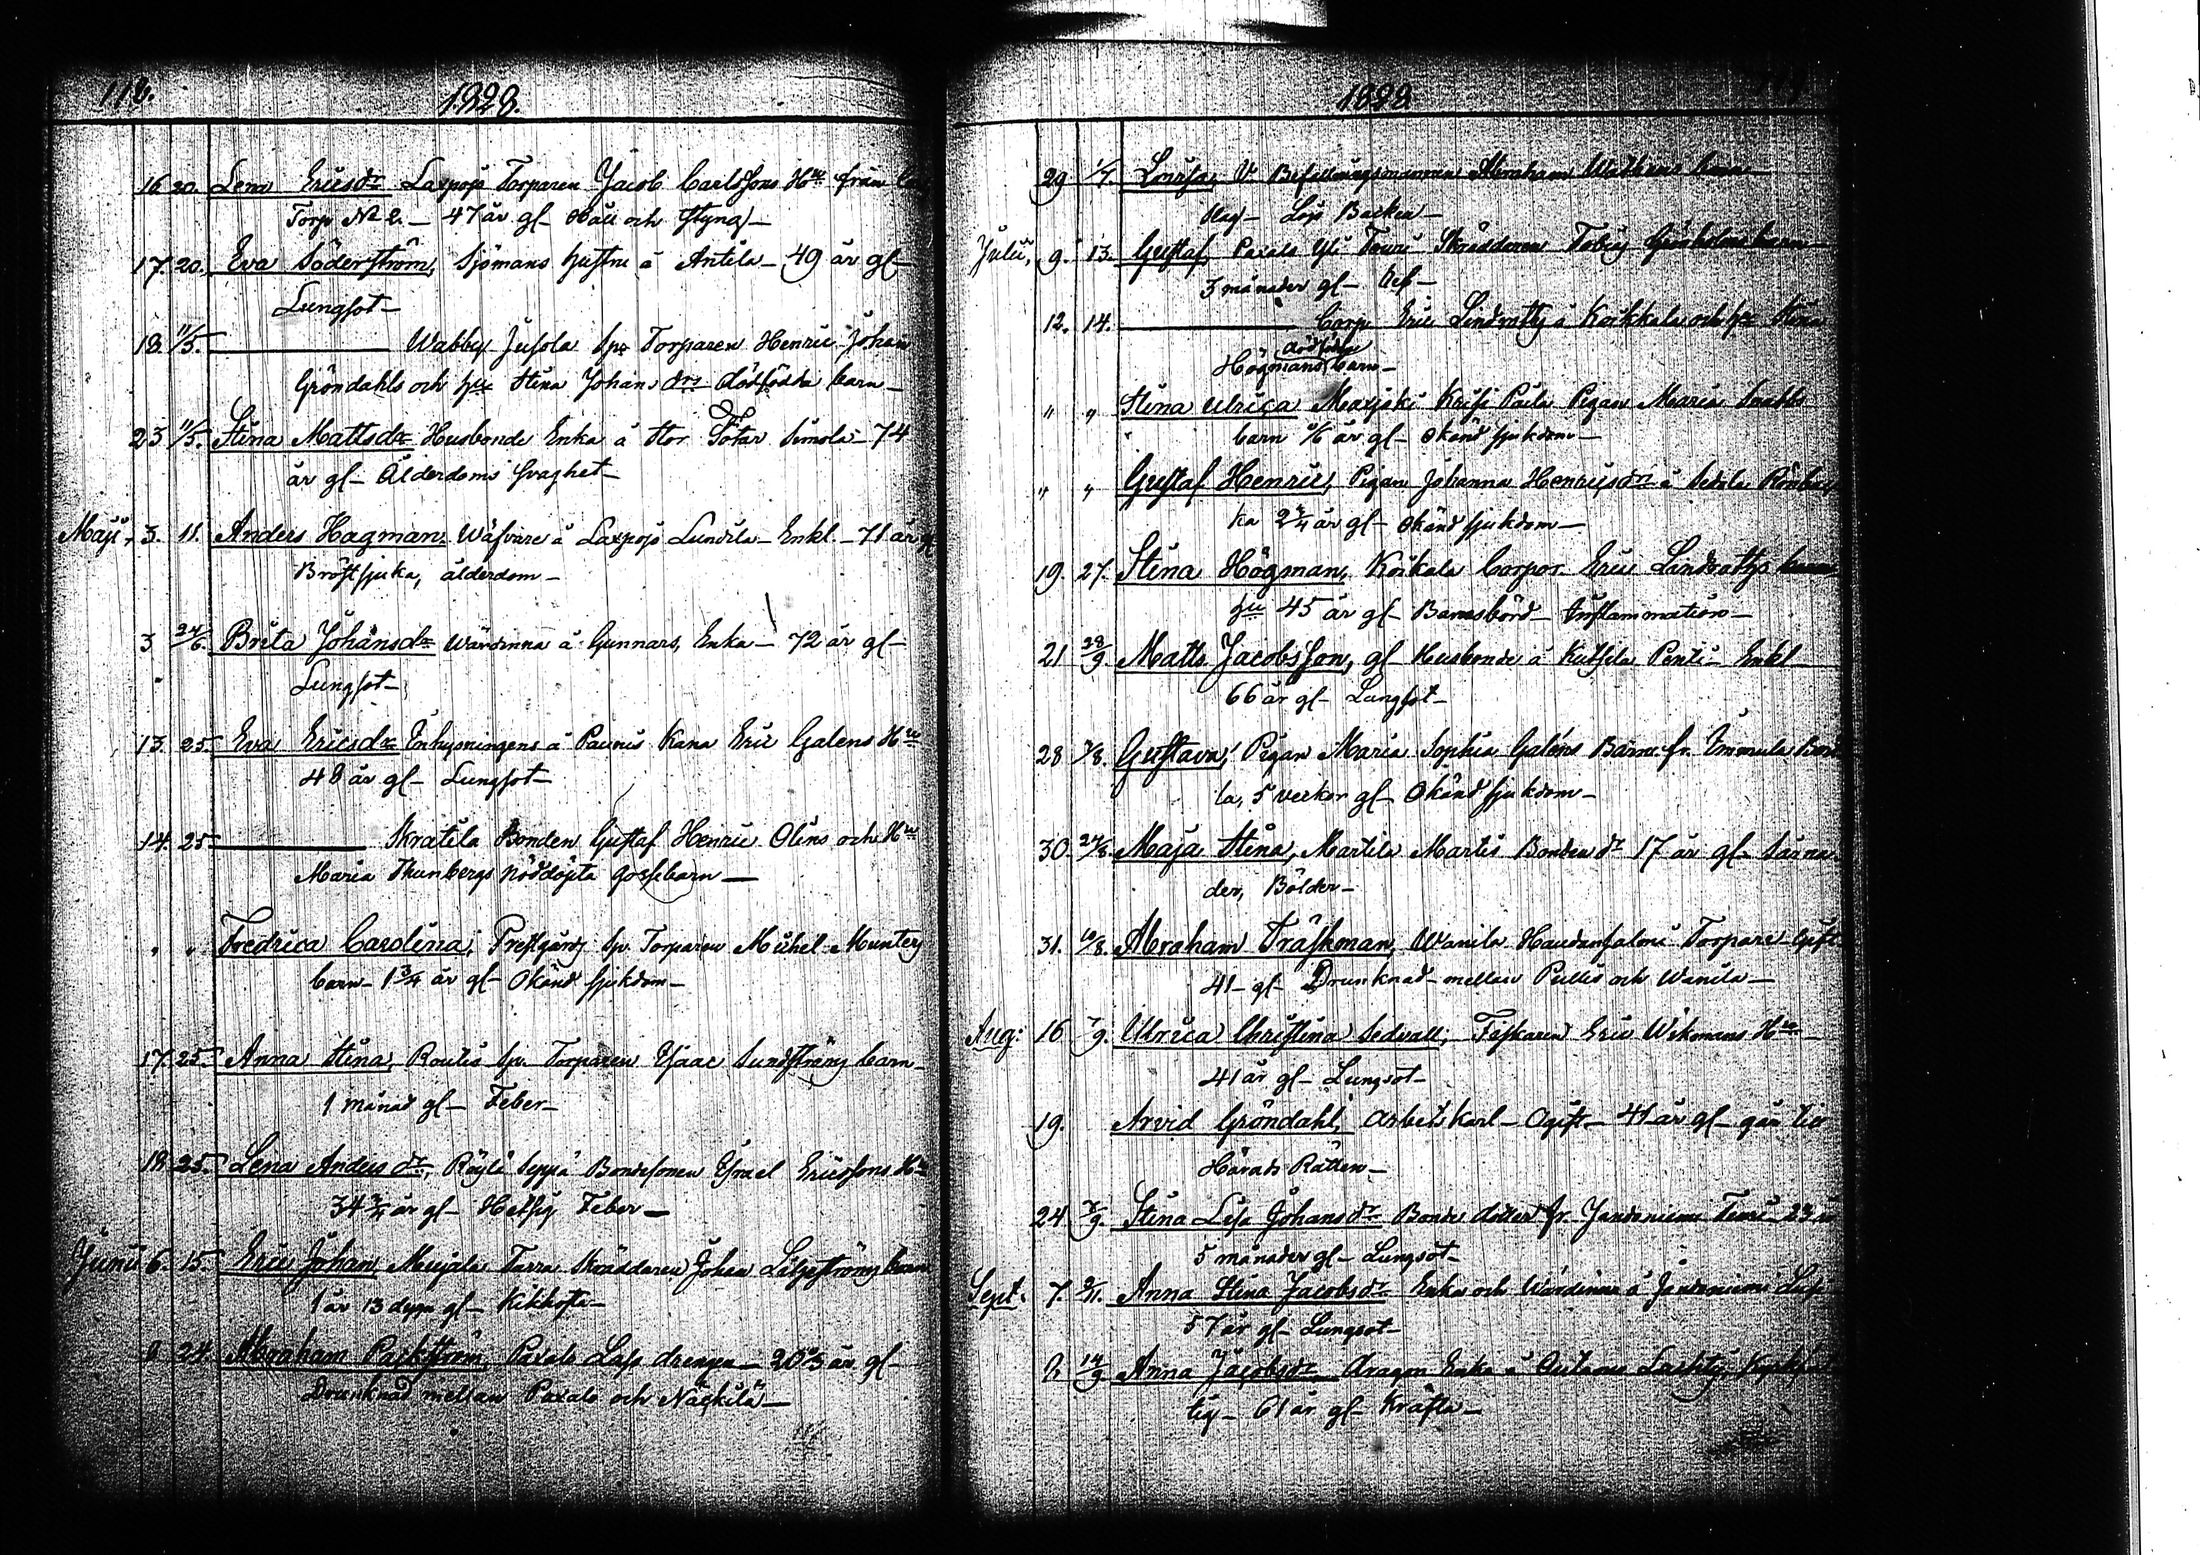 118.
1828.
16. 20. Lena Ericsdr Laxpojo Torparen Jacob Carlssons Hu från
Torp No 2. — 47 år gl — Håll och Styng —
17. 20. Eva Söderström, Sjömans hustru å Antila — 49 år gl —
Lungsot —
18. 11/5. ——— Wabby Jusola Sp: Torparen Henric Johan
Gröndahls och hu Stina Johans drs dödfödda barn —
23 11/5. Stina Mattsdr Husbonde Enka å Stor Tötar Simola — 74
år gl — Ålderdoms svaghet —
Maji, 3. 11. Anders Hagman, Wäfvare å Laxpojo Lundila — Enkl. — 71 år gl
Bröstsjuka, ålderdom —
3 24/6. Brita Johansdr Wärdinna å Gunnars, Enka — 72 år gl —
Lungsot —
13. 25. Eva Ericsdr Inhysningens å Paunis Kana Eric Galens Hu
48 år gl — Lungsot —
14. 25 ——— Skratila Bonden Gustaf Henric Olins och Hu
Maria Thunbergs Nöddöpta gossebarn —
" " Fredrica Carolina, Prestgårds Sp. Torparen Michel Munters
barn — 1 3/4 år gl — Okänd sjukdom —
17. 25. Anna Stina, Routis Sp. Torparen Isaac Sundströms barn —
1 månad gl — Feber —
18. 25. Lena Anders dr, Röylä Seppä Bondesonen Israel Ericssons Hu
34 3/4 år gl — Hetsig Feber —
Junii 6. 15. Eric Johan, Marjala Tarra Skräddaren Johan Liljeströms barn
1 år 13 dygn gl — Kikhosta —
8 24. Abraham Packström, Paxalo Lassi drengen — 20 2/3 år gl —
Drunknad mellan Paxalo och Näckilä —
1828
29 1/7. Lovisa, V. Befallningsmannen Abraham barn —
Slag — Lojo Backa —
Julii, 9. 13. Gustaf, Paxalo Yli Teuri Skräddaren Tobias Grönholms barn —
3 månader gl —
12. 14. ——— Corp. Eric Lindroths å Koikkala och hu Stina
Högmans dödfödda barn —
" " Stina Ulrica Maxjoki Krissi Paila Pigan Maria
barn år gl — Okänd sjukdom —
" " Gustaf Henric, Pigan Johanna Henricsdrs å
ka 2 3/4 år gl — Okänd sjukdom —
19. 27. Stina Högman, Koikala Corpor. Eric Lindroths
hu 45 år gl — Barnsbörd — Inflammation —
21 28/9 Matts Jacobsson, gl — Husbonde å Kutsila Penti — Enkl —
66 år gl — Lungsot —
28 3/8. Gustava, Pigan Maria Sophia Galéns Barn fr. Immula
la, 5 veckor gl — Okänd sjukdom —
30. 24/8. Maja Stina, Martila Martis Bonden dr 17 år gl —
der, Bölder —
31. 10/8. Abraham Träskman, Wanila Haudansalmi Torpare — Gift
41 — gl — Drunknad mellan Pullis och Wanila —
Aug: 16 7/9. Ulrica Christina Sedvall, Fiskaren Eric Wikmans Hu —
41 år gl — Lungsot —
19. Arvid Gröndahl, Arbetskarl — Ogift — 41 år gl — går till
Härads Rätten —
24 7/9. Stina Lisa Johans dr Bonde dotter fr. Jandoniemi Teuri — 23 år
5 månader gl — Lungsot —
Sept. 7. Anna Stina Jacobsdr Enka och Wärdinna å Jandoniemi
57 år gl — Lungsot —
8. 14/9 Anna Jacobsdr, Dragon Enka å
tig — 61 år gl — Kräfta —